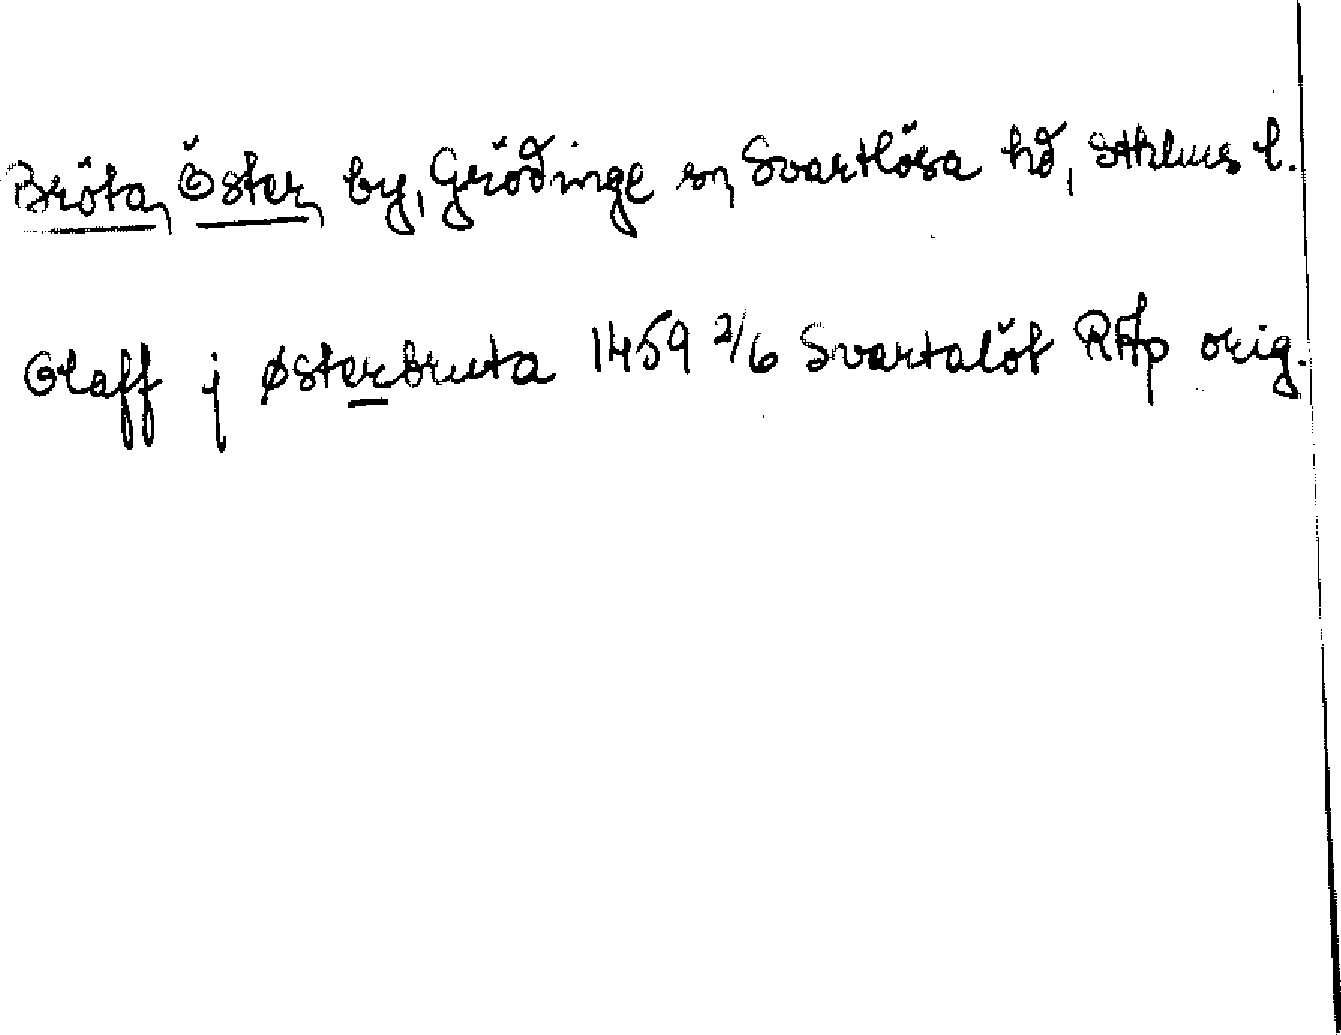 Bröta, Öster, by, Grödinge sn, Svartlösa hd, Sthlms l.
Olaff j østerbruta 1459 2/6 Svartalöt RAp orig.